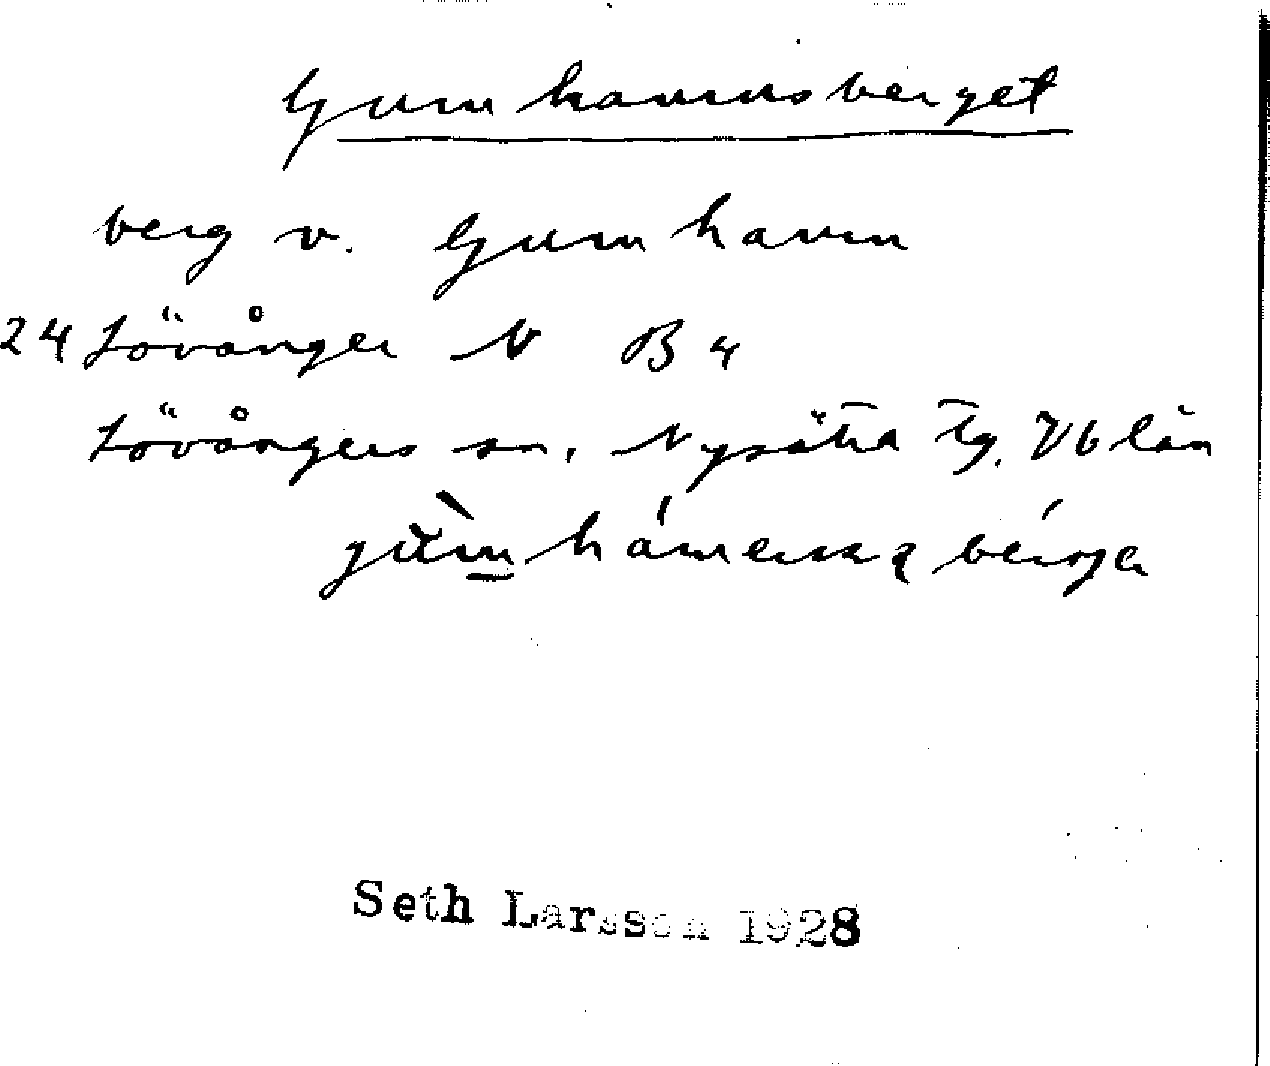 Gumhamnsberget
berg v. Gumhamn
24 Lövånger N B 4
Lövångers sn, Nysätra tg. Vb län
Seth Larsson 1928